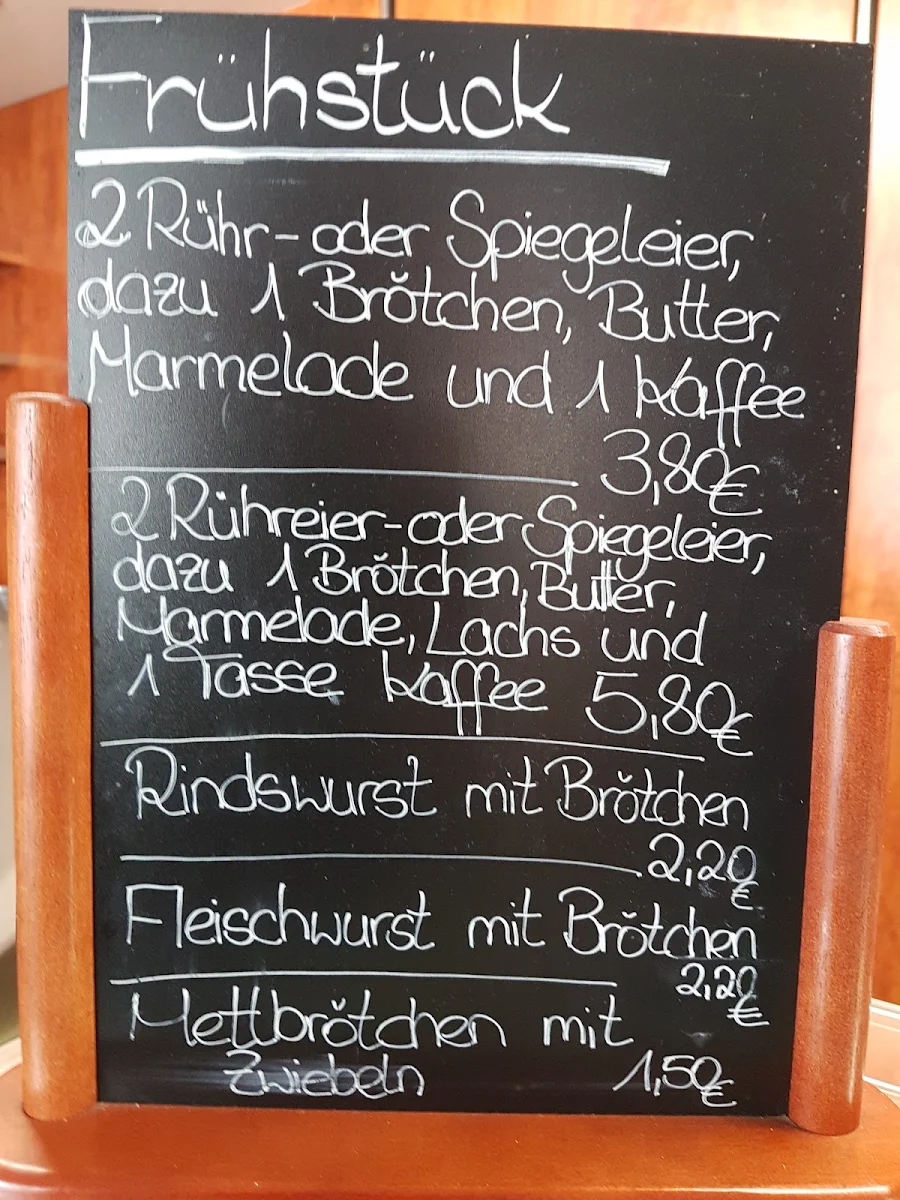 Frühstück
2 Rühr- oder Spiegeleier,
dazu 1 Brötchen, Butter,
Marmelade und 1 Kaffee
3,80€
2 Rühreier- oder Spiegeleier,
dazu 1 Brötchen, Butter,
Marmelade, Lachs und
1 Tasse Kaffee 5,80€
Rindswurst mit Brötchen
2,20€
Fleischwurst mit Brötchen
2,20€
Mettbrötchen mit
Zwiebeln 1,50€